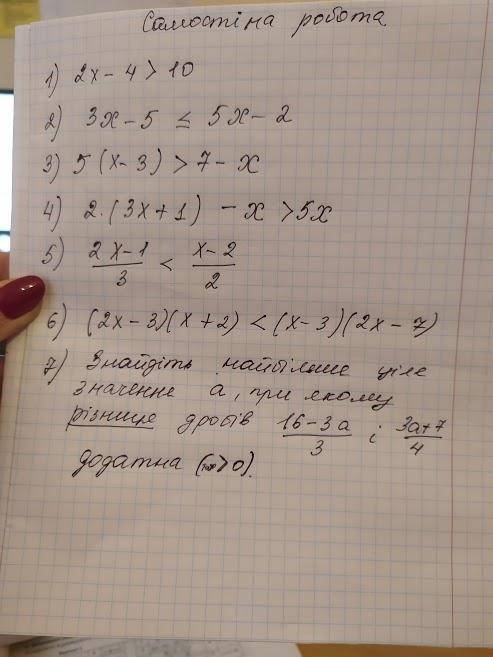 Самостіна робота
1) 2x - 4 > 10
2) 3x - 5 ≤ 5x - 2
3) 5(x - 3) > 7 - x
4) 2·(3x + 1) - x > 5x
5) \frac{2x - 1}{3} < \frac{x - 2}{2}
6) (2x - 3)(x + 2) < (x - 3)(2x - 7)
7) Знайдіть найбільше ціле
значення a, при якому
різниця дробів \frac{16 - 3a}{3} і \frac{3a + 7}{4}
додатна ( > 0).